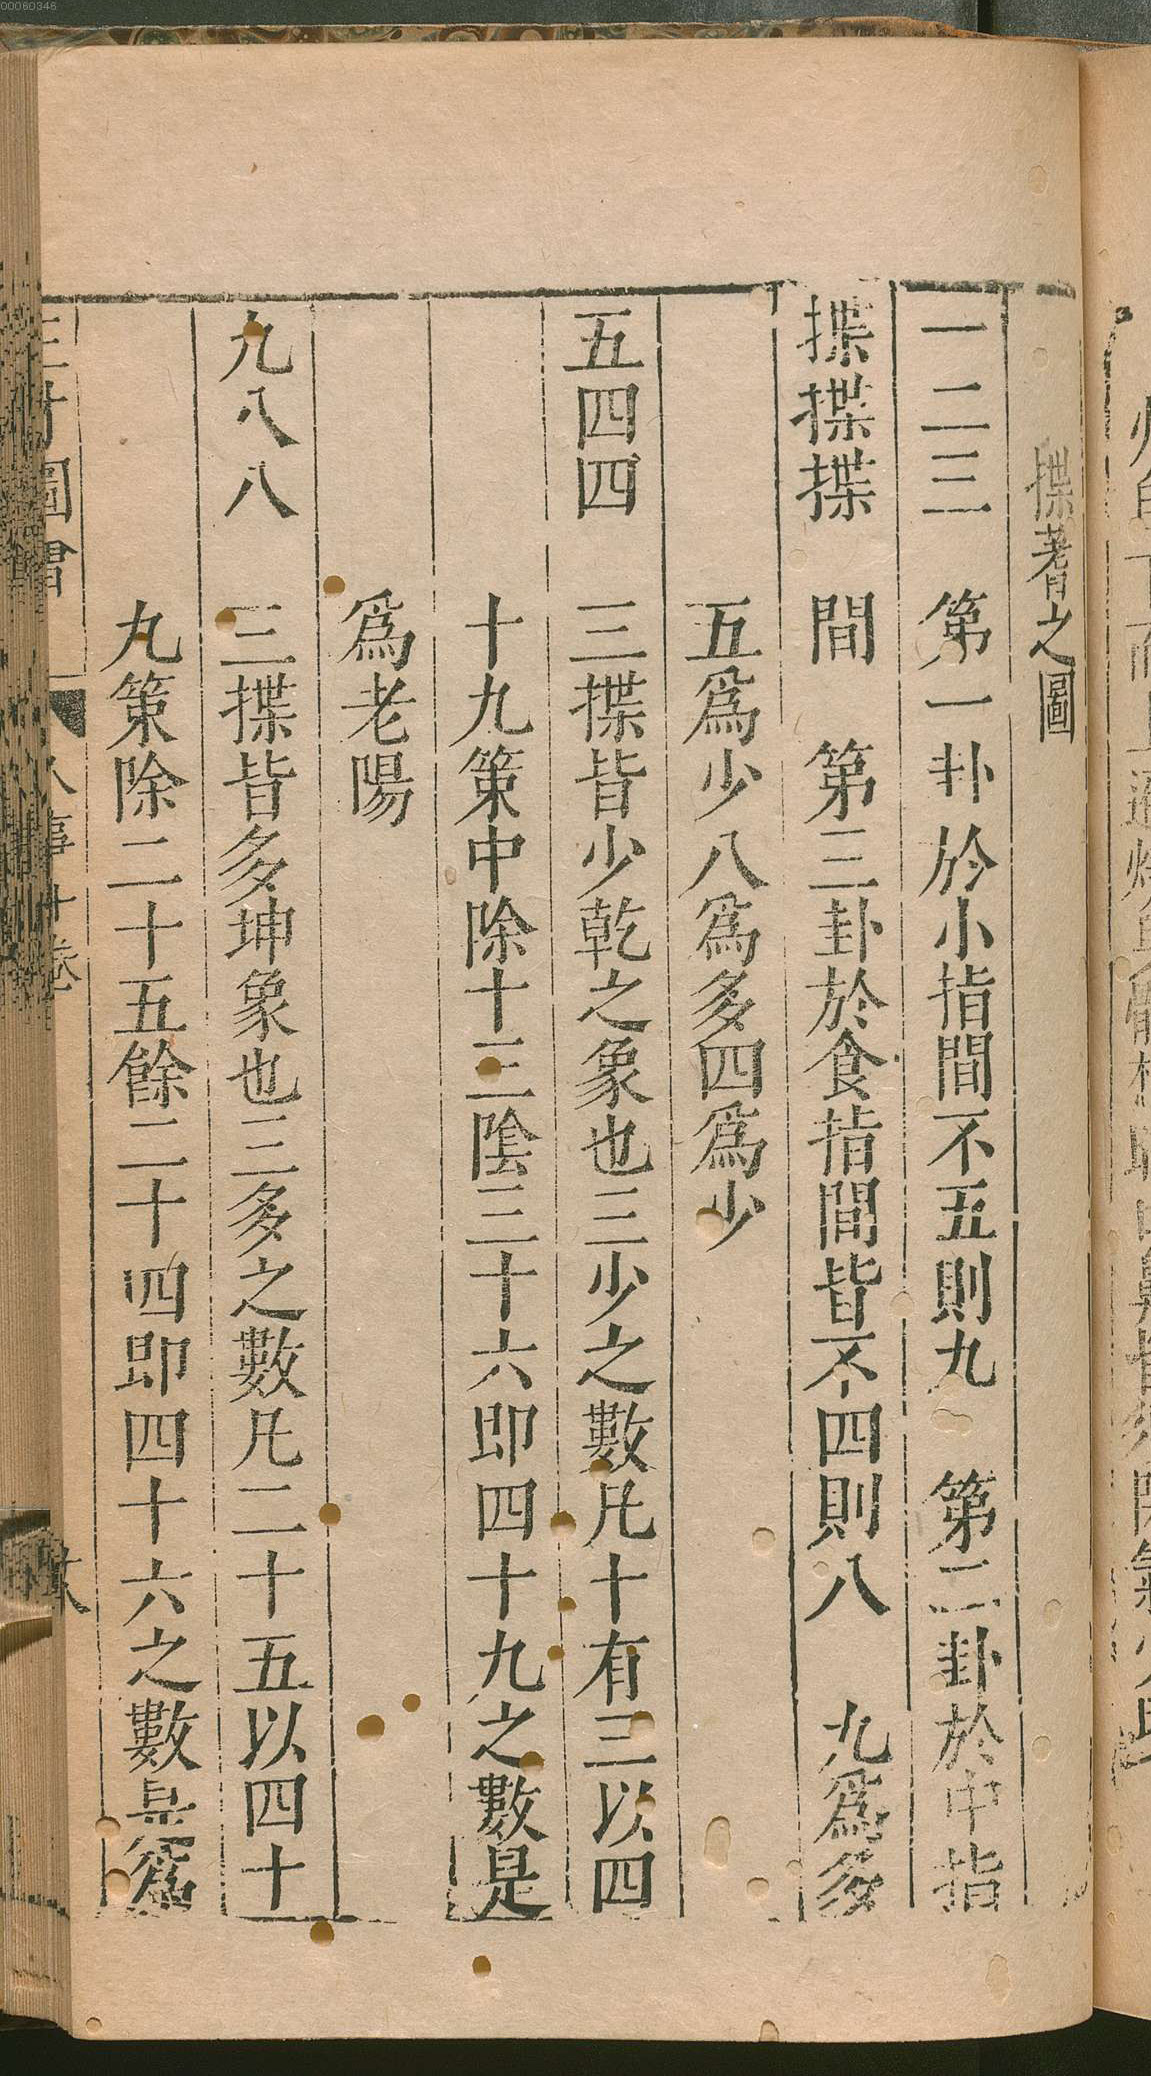 揲蓍之圖
一二三 第一卦於小指間不五則九 第二卦於中指
揲揲揲 間 第三卦於食指間皆不四則八 九爲多
五爲少八爲多四爲少
五四四 三揲皆少乾之象也三少之數凡十有三以四
十九策中除十三陰三十六即四十九之數是
爲老陽
九八八 三揲皆多坤象也三多之數凡二十五以四十
九策除二十五餘二十四即四十六之數是爲
圖會
00060346